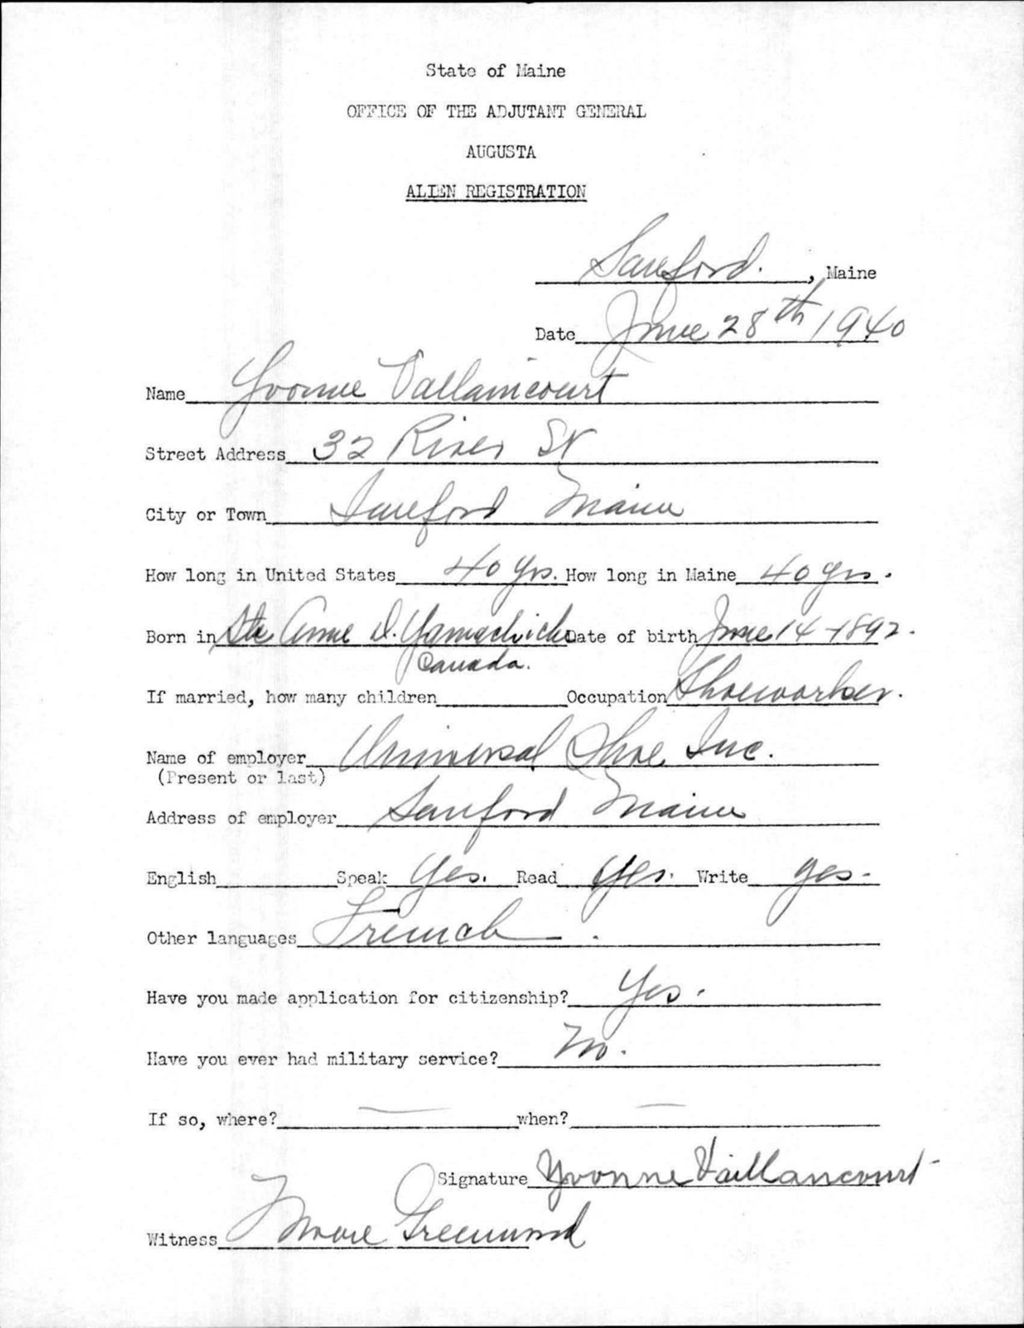 State of Maine
OFFICE OF THE ADJUTANT GENERAL
AUGUSTA
ALIEN REGISTRATION
Sanford. , Maine
Date June 28th 1940
Name Yvonne Vallaincourt
Street Address 32 River St
City or Town Sanford Maine
How long in United States 40 yrs. How long in Maine 40 yrs.
Born in Ste Anne D. Yamachiche Date of birth June 14-1892.
Canada.
If married, how many children Occupation Shoeworker.
Name of employer Universal Shoe Inc.
(Present or last)
Address of employer Sanford Maine
English Speak Yes. Read Yes. Write yes-
Other languages French.
Have you made application for citizenship? Yes.
Have you ever had military service? No.
If so, where? — when? —
Signature Yvonne Vaillancourt
Witness Greenwood